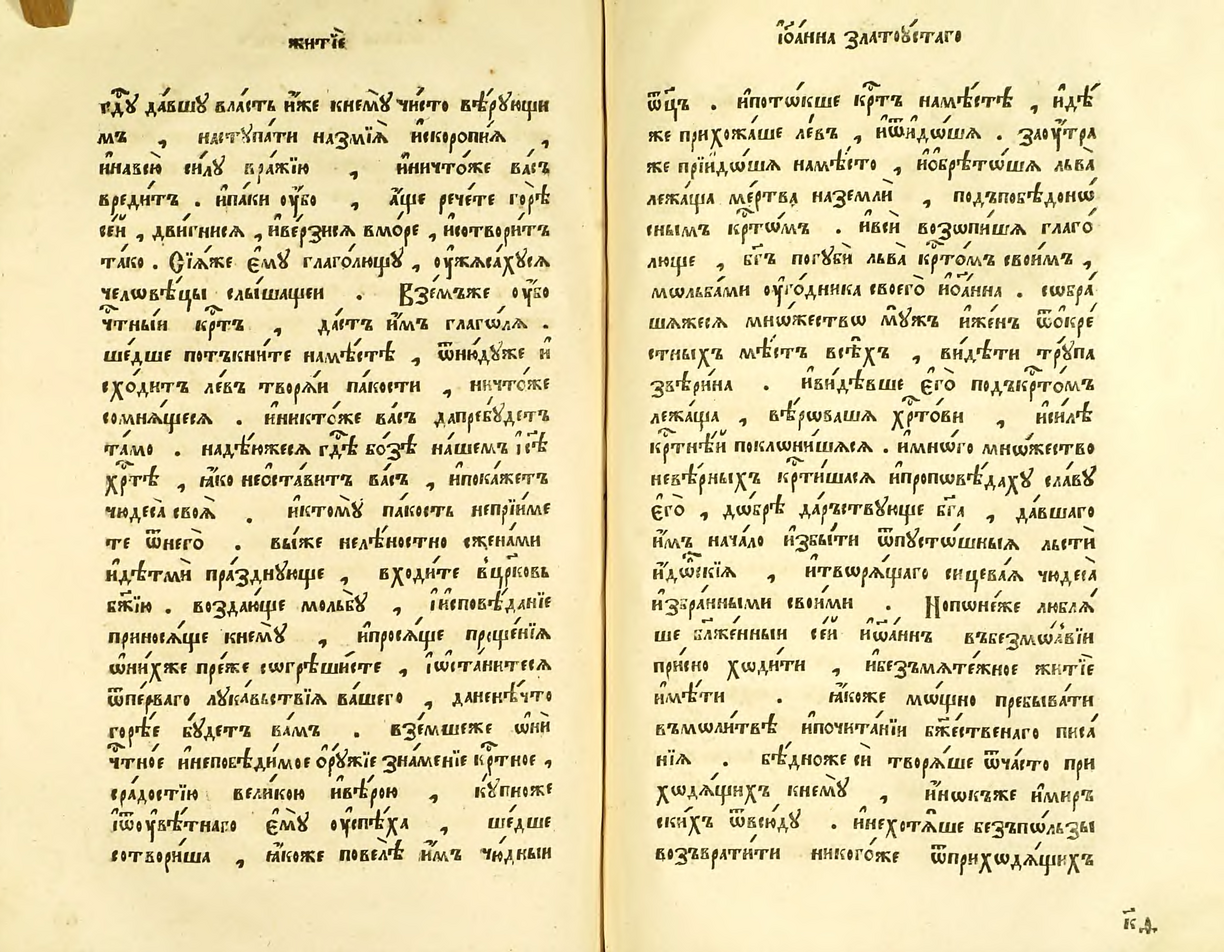 житїе
гдꙋ да́вшꙋ вла́сть и́же кнемꙋ̀ чи́сто вѣ́рꙋющи
мъ , настꙋпа́ти назмїѧ̀ искоропїѧ ,
инавсю̀ си́лꙋ вра́жїю , иничто́же ва́съ
вредитъ . ипа́ки оу́бо , а́ще рече́те горѣ̀
се́и , дви́гнисѧ , иве́рзисѧ вмо́ре , исотвори́тъ
та́ко . Сїѧ́же е҆мꙋ̀ глаго́лющꙋ , оужаса́хꙋсѧ
челѡвѣ́цы слы́шащеи . Взе́мъже оу́бо
чтны́и крⷭ҇тъ , да́стъ и́мъ глаго́лѧ .
ше́дше потъкни́те намѣ́стѣ , ѿню́дꙋже и
схо́дитъ ле́въ творѧ́и па́кости , ничто́же
сомнѧ́щесѧ . иникто́же ва́съ дапребꙋ́детъ
та́мо . надѣ́южесѧ гдⷭ҇ѣ бо́зѣ на́шемъ і҆сѣ
хрⷭ҇тѣ̀ , ꙗ҆́ко неоста́витъ ва́съ , ипока́жетъ
чюдеса̀ своѧ̀ . иктомꙋ̀ па́кость непрїи́ме
те ѿнего̀ . вы́же нелѣ́ностно сжена́ми
идѣтмѝ пра́зднꙋюще , входи́те вцр҃ковь
бж҃їю . воздаю́ще мольбꙋ̀ , і҆исповѣ́данїе
приносѧ́ще кнемꙋ̀ , ипросѧ́ще проще́нїѧ
ѡни́хже пре́же сѡгрѣши́сте , і҆ѡста́нитесѧ
ѿпе́рваго лꙋка́вьствїѧ ва́шего , данене́что
го́рѣе бꙋ́детъ ва́мъ . взе́мшеже ѡнѝ
чтно́е инепобѣди́мое ѻрꙋ́жїе зна́менїе крⷭ҇тное ,
сра́достїю вели́кою ивѣ́рою , кꙋ́пноже
і҆ѿоувѣ́тнаго е҆мꙋ̀ оуспѣ́ха , ше́дше
сотвори́ша , ꙗ҆́коже повелѣ̀ и́мъ чю́дныи
і҆ѡа́нна златоꙋ́стаго
ѿц҃ъ . ипотѡ́кше крⷭ҇тъ намѣ́стѣ , идѣ́
же прихожа́ше ле́въ , иѿидо́шѧ . заоу́тра
же прїидо́шѧ намѣ́сто , иѡбрѣто́шѧ льва̀
лежа́ща ме́ртва наземлѝ , подъпобѣ́доно
снымъ крⷭ҇то́мъ . ивсѝ возѡпи́шѧ глаго́
люще , бг҃ъ погꙋбѝ льва̀ крⷭ҇то́мъ свои́мъ ,
мѡльба́ми оуго́дника своего̀ иоа́нна . собра́
шѧжесѧ мно́жество мꙋ́жъ иже́нъ ѿокре́
стныхъ мѣ́стъ всѣ́хъ , ви́дѣти трꙋ́па
звѣ́рина . иви́дѣвше е҆го̀ подъкрⷭ҇то́мъ
лежа́ща , вѣ́роваша хрⷭ҇то́ви , иси́лѣ
крⷭ҇тнѣ́и поклони́шѧсѧ . имно́го мно́жество
невѣ́рныхъ крⷭ҇ти́шасѧ ипроповѣ́дахꙋ сла́вꙋ
е҆го̀ , до́брѣ да́рьствꙋюще бг҃а , да́вшаго
и́мъ нача́ло избы́ти ѿпꙋсто́шныѧ льсти
идо́льскїѧ , итворѧ́щаго сицева́ѧ чюдеса̀
избра́нными свои́ми . Нопоне́же люблѧ́
ше бл҃же́нныи се́и иѡа́ннъ въбезмо́лвїи
при́сно ходи́ти , ибезъмѧте́жное житїе
имѣ́ти . ꙗ҆́коже мо́щно пребыва́ти
въмоли́твѣ ипочита́нїи бж҃е́ственаго писа́
нїѧ . бѣ́дноже сѝ творѧ́ше ѿча́сто при
ходѧ́щихъ кнемꙋ̀ , ино́къже имир
скихъ ѿвсю́дꙋ . инехотѧ́ше безъпо́льзы
возъврати́ти никого́же ѿприходѧ́щихъ
к҃д